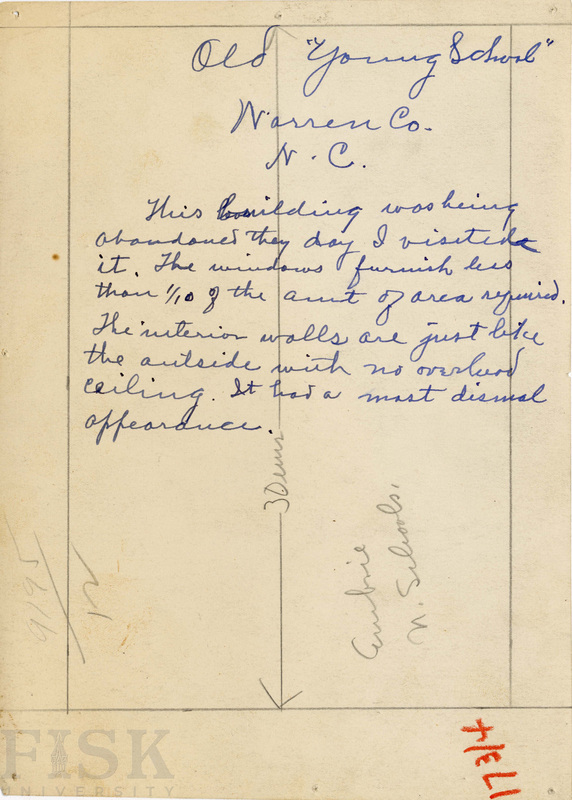 Old "Young School"
Warren Co.
N. C.
This building was being
abandoned they day I visited
it. The windows furnish less
than 1/10 of the amt of area required.
The interior walls are just like
the outside with no overhead
ceiling. It had a most dismal
appearance.
30 ems
N. Schools.
9195
12
173/4
FISK
UNIVERSITY